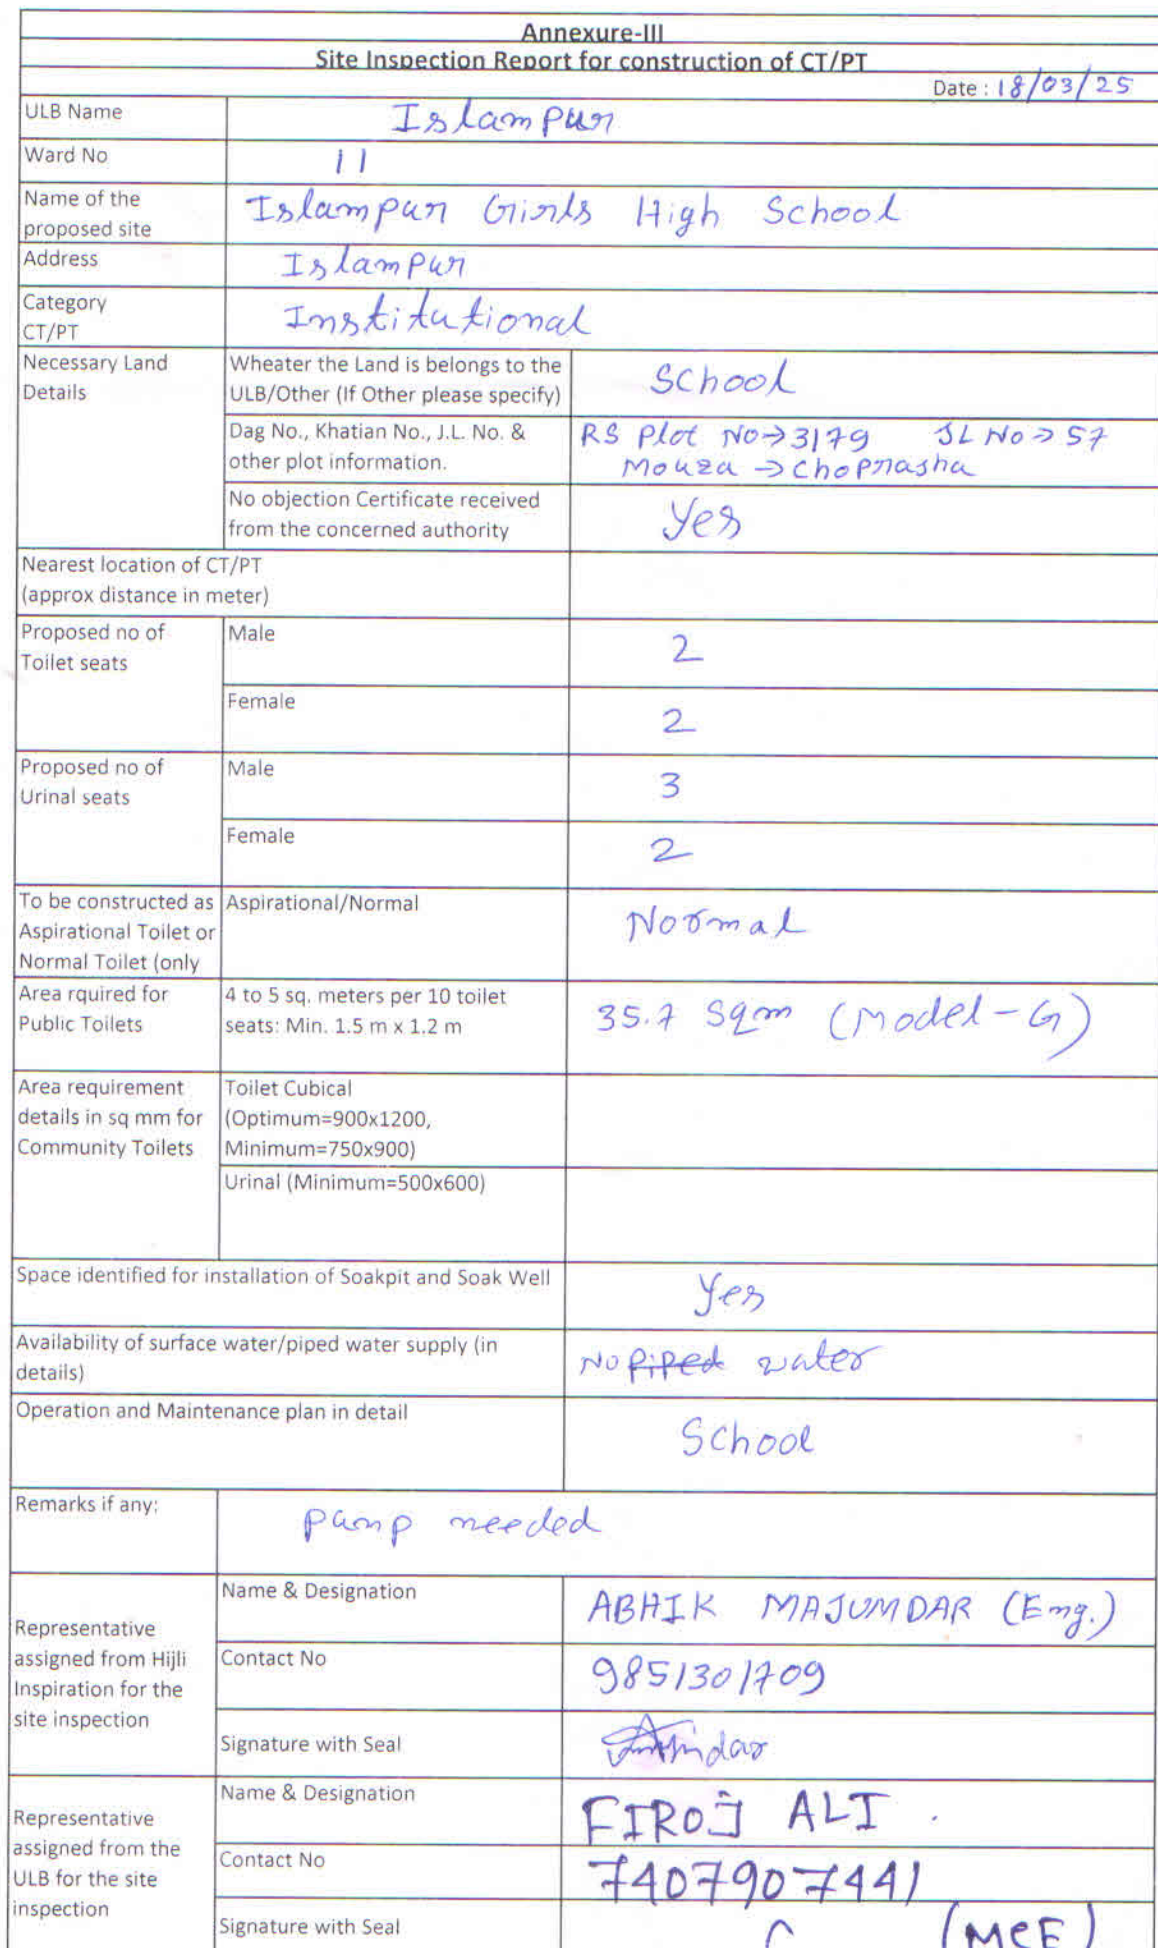 Annexure-III
Site Inspection Report for construction of CT/PT
Date : 18/03/25
ULB Name
Islampur
Ward No
11
Name of the
proposed site
Islampur Girls High School
Address
Islampur
Category
CT/PT
Institutional
Necessary Land
Details
Wheater the Land is belongs to the
ULB/Other (If Other please specify)
School
Dag No., Khatian No., J.L. No. &
other plot information.
RS Plot No→3179 JL No→57
Mouza →Choprasha
No objection Certificate received
from the concerned authority
Yes
Nearest location of CT/PT
(approx distance in meter)
Proposed no of
Toilet seats
Male
2
Female
2
Proposed no of
Urinal seats
Male
3
Female
2
To be constructed as
Aspirational Toilet or
Normal Toilet (only
Aspirational/Normal
Normal
Area rquired for
Public Toilets
4 to 5 sq. meters per 10 toilet
seats: Min. 1.5 m x 1.2 m
35.7 Sqm (Model-G)
Area requirement
details in sq mm for
Community Toilets
Toilet Cubical
(Optimum=900x1200,
Minimum=750x900)
Urinal (Minimum=500x600)
Space identified for installation of Soakpit and Soak Well
Yes
Availability of surface water/piped water supply (in
details)
No piped water
Operation and Maintenance plan in detail
School
Remarks if any:
pump needed
Representative
assigned from Hijli
Inspiration for the
site inspection
Name & Designation
ABHIK MAJUMDAR (Eng.)
Contact No
9851301709
Signature with Seal
Representative
assigned from the
ULB for the site
inspection
Name & Designation
FIROJ ALI .
Contact No
7407907441
Signature with Seal
(MCE)